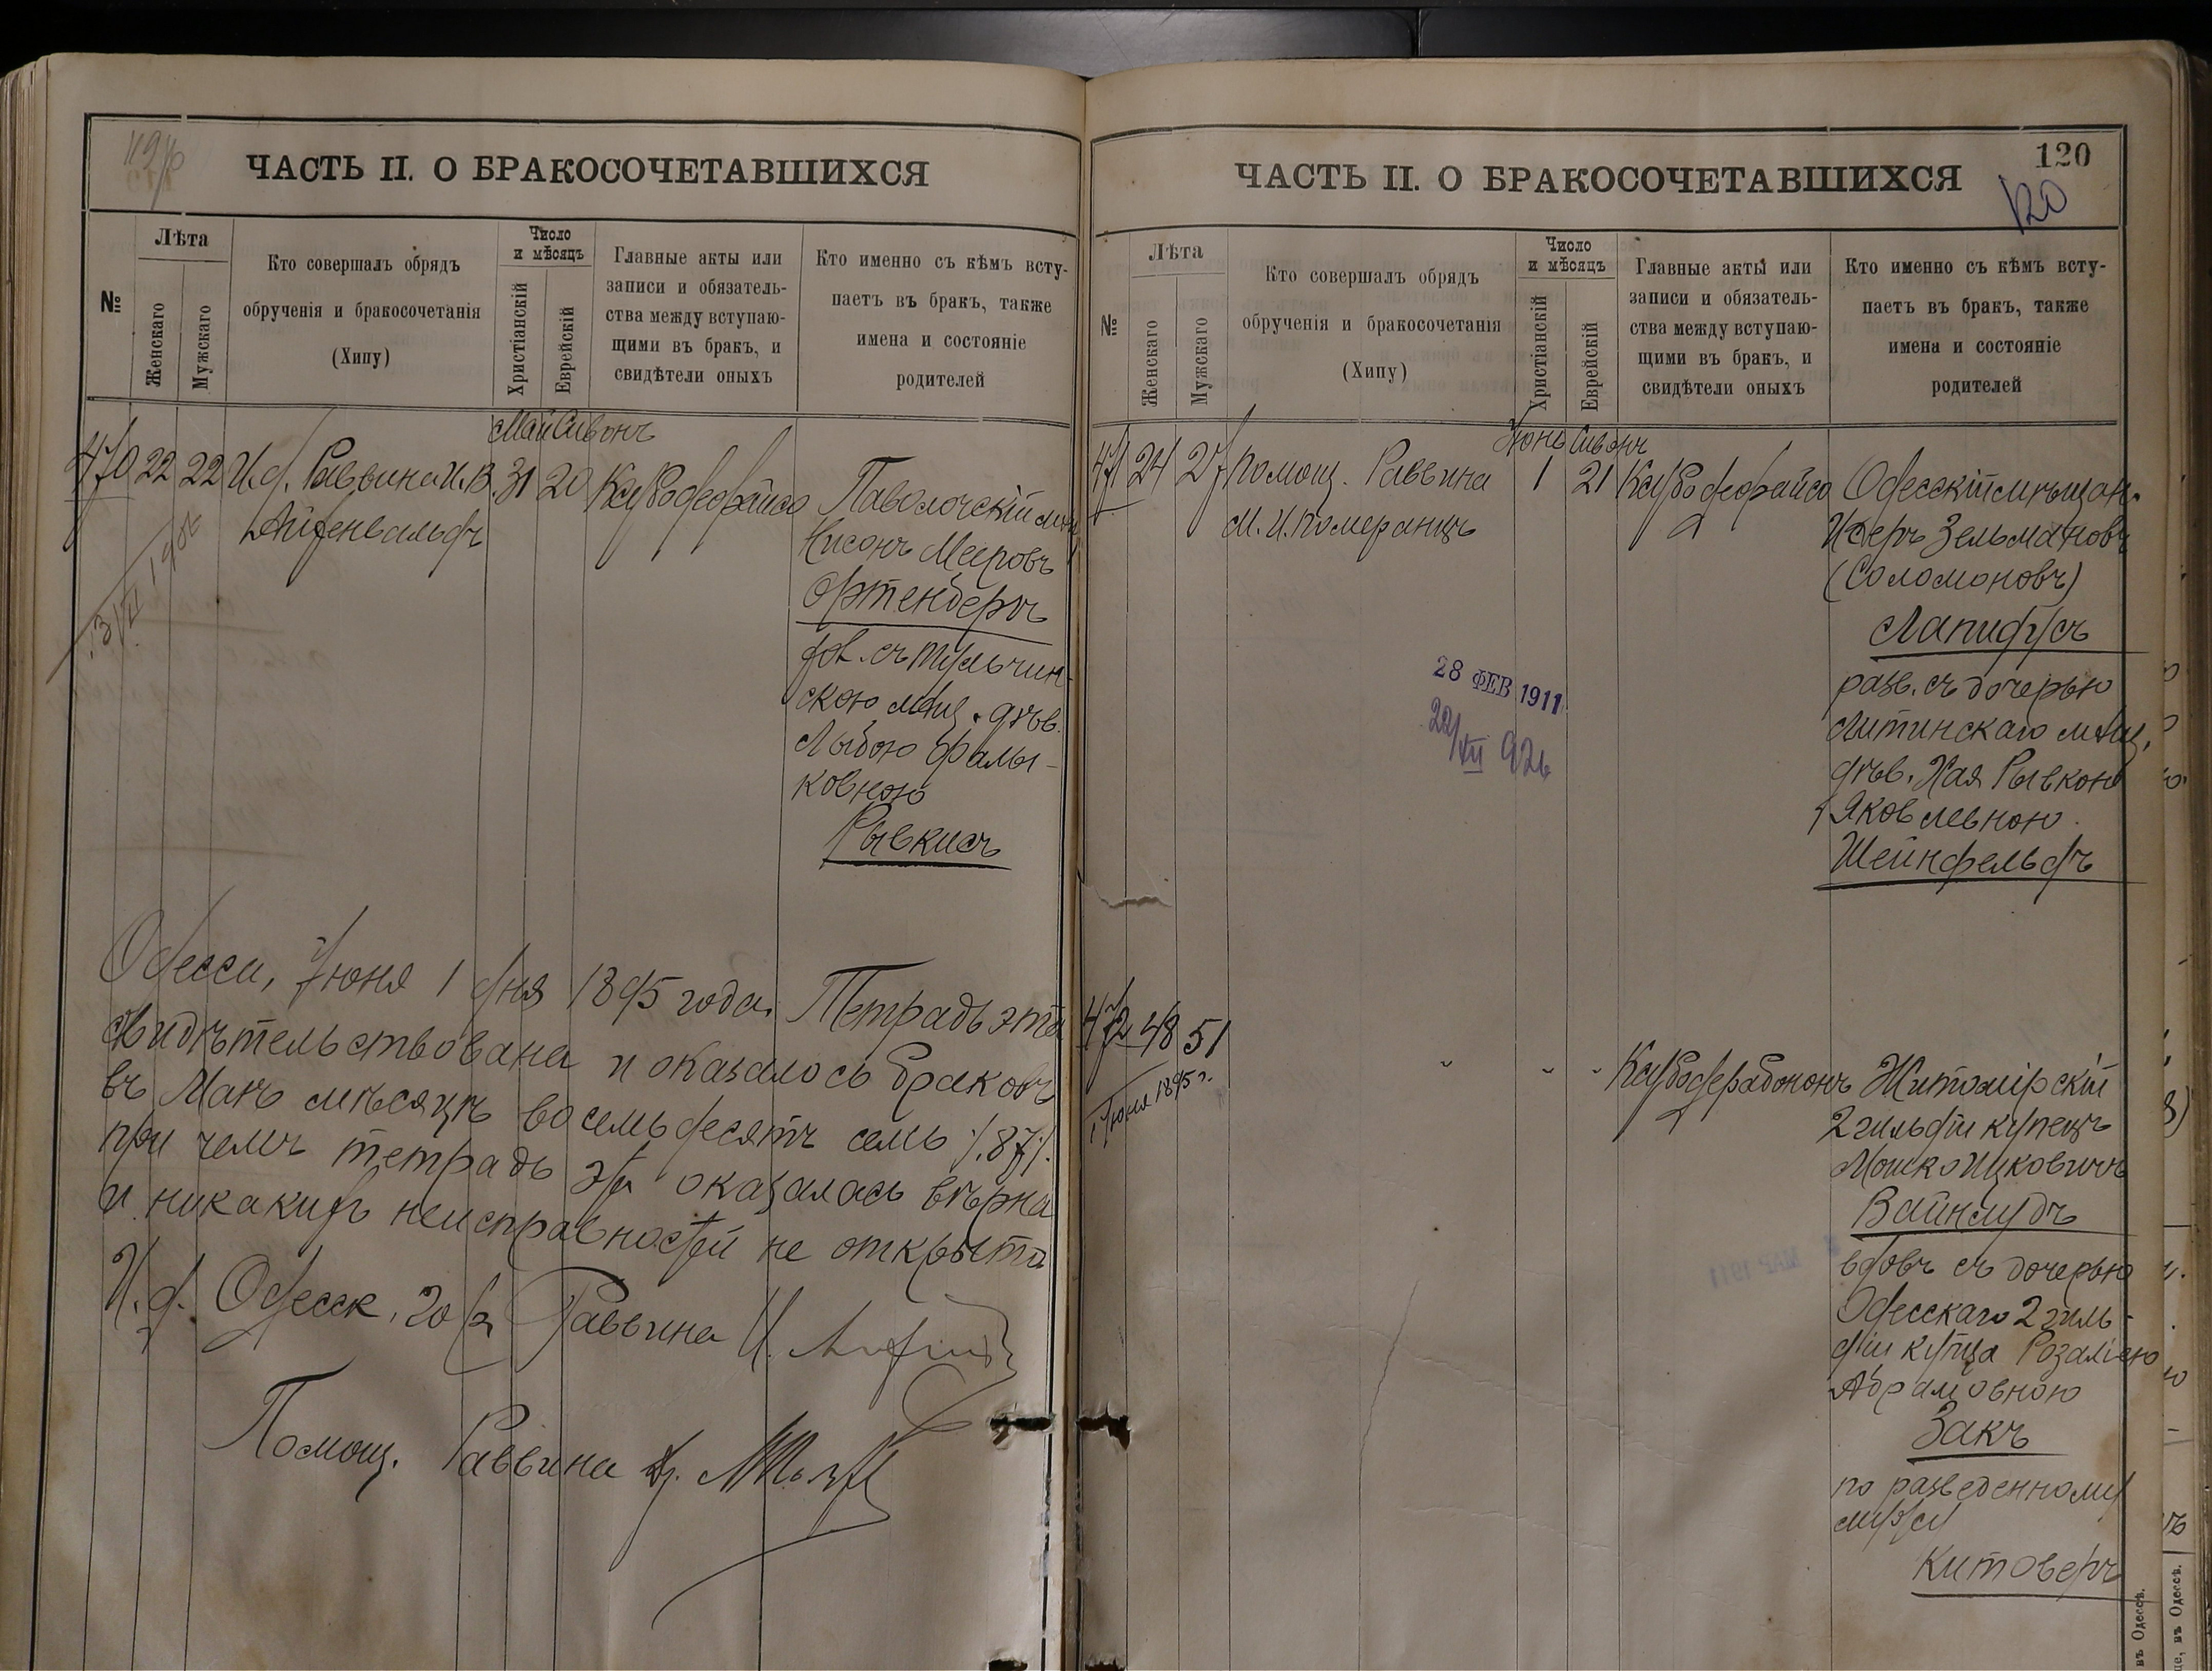 119 об
ЧАСТЬ II. О БРАКОСОЧЕТАВШИХСЯ
№
Лѣта
Женскаго
Мужскаго
Кто совершалъ обрядъ
обрученія и бракосочетанія
(Хипу)
Число
и мѣсяцъ
Христіанскій
Еврейскій
Главные акты или
записи и обязатель-
ства между вступаю-
щими въ бракъ, и
свидѣтели оныхъ
Кто именно съ кѣмъ всту-
паетъ въ бракъ, также
имена и состояніе
родителей
Май Сивонъ
470 22 22 И.д. Раввина И. В. 31 20 Паволочскій мѣщ.
Айзенвальдъ
Нисонъ Мееровъ
Ортенбергъ
хол. съ Тульчин-
скою мѣщ. дѣв.
Лыбою Фалы-
ковною
Рывкисъ
Одесса, Іюня 1 дня 1895 года. Тетрадь эта
свидѣтельствована и оказалось браковъ
въ Маѣ мѣсяцѣ восемьдесятъ семь /.87/.
при чемъ тетрадь эта оказалась вѣрна
и никакихъ неисправностей не открыто
И. д. Одесск. Раввина
Помощ. Раввина
120
120
ЧАСТЬ II. О БРАКОСОЧЕТАВШИХСЯ
№
Лѣта
Женскаго
Мужскаго
Кто совершалъ обрядъ
обрученія и бракосочетанія
(Хипу)
Число
и мѣсяцъ
Христіанскій
Еврейскій
Главные акты или
записи и обязатель-
ства между вступаю-
щими въ бракъ, и
свидѣтели оныхъ
Кто именно съ кѣмъ всту-
паетъ въ бракъ, также
имена и состояніе
родителей
Іюнь Сивонъ
471 24 27 Помощ. Раввина 1 21 Одесскій мѣщан.
М. И. Померанцъ
Зельмановъ
(Соломоновъ)
Лапидусъ
разв. съ дочерью
Литинскаго мѣщ.
дѣв. Хая Рывкою
Яковлевною
Шейнфельдъ
28 ФЕВ 1911
22/VII 926
472 48 51 Житомірскій
1 Іюня 1895 г.
2 гильдіи купецъ
Мошко Ицковичъ
Вайнлудъ
вдовъ съ дочерью
Одесскаго 2 гиль-
діи купца Розаліею
Абрамовною
Закъ
по разведенному
мужу
Китоверъ
въ Одессѣ.
въ Одессѣ.